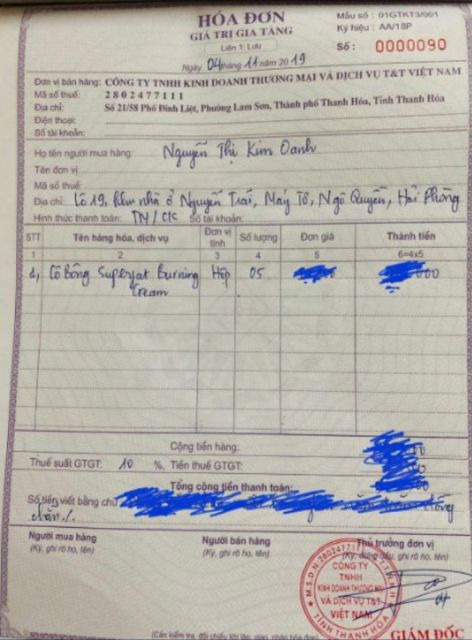 HÓA ĐƠN
GIÁ TRỊ GIA TĂNG
Liên 1: Lưu
Ngày 04 tháng 11 năm 2019
Mẫu số : 01GTKT3/001
Ký hiệu : AA/18P
Số : 0000090
Đơn vị bán hàng: CÔNG TY TNHH KINH DOANH THƯƠNG MẠI VÀ DỊCH VỤ T&T VIỆT NAM
Mã số thuế: 2802477111
Địa chỉ: Số 21/58 Phố Đinh Liệt, Phường Lam Sơn, Thành phố Thanh Hóa, Tỉnh Thanh Hóa
Điện thoại:
Số tài khoản:
Họ tên người mua hàng: Nguyễn Thị Kim Oanh
Tên đơn vị:
Mã số thuế:
Địa chỉ: Lô 19, nhà ở Nguyễn Trãi, Máy Tơ, Ngô Quyền, Hải Phòng
Hình thức thanh toán: TM/CK Số tài khoản:
STT Tên hàng hóa, dịch vụ Đơn vị tính Số lượng Đơn giá Thành tiền
1 2 3 4 5 6=4x5
1, Cô Bông Superfat Burning Hộp 05
Cream
Cộng tiền hàng:
Thuế suất GTGT: 10 %, Tiền thuế GTGT:
Tổng cộng tiền thanh toán:
Số tiền viết bằng chữ
đồng
chẵn./.
Người mua hàng Người bán hàng Thủ trưởng đơn vị
(Ký, ghi rõ họ, tên) (Ký, ghi rõ họ, tên) (Ký, đóng dấu, ghi rõ họ, tên)
CÔNG TY
TNHH
KINH DOANH THƯƠNG MẠI
VÀ DỊCH VỤ T&T
VIỆT NAM
TỈNH THANH HÓA
GIÁM ĐỐC
(Cần kiểm tra, đối chiếu khi lập, giao, nhận hóa đơn)